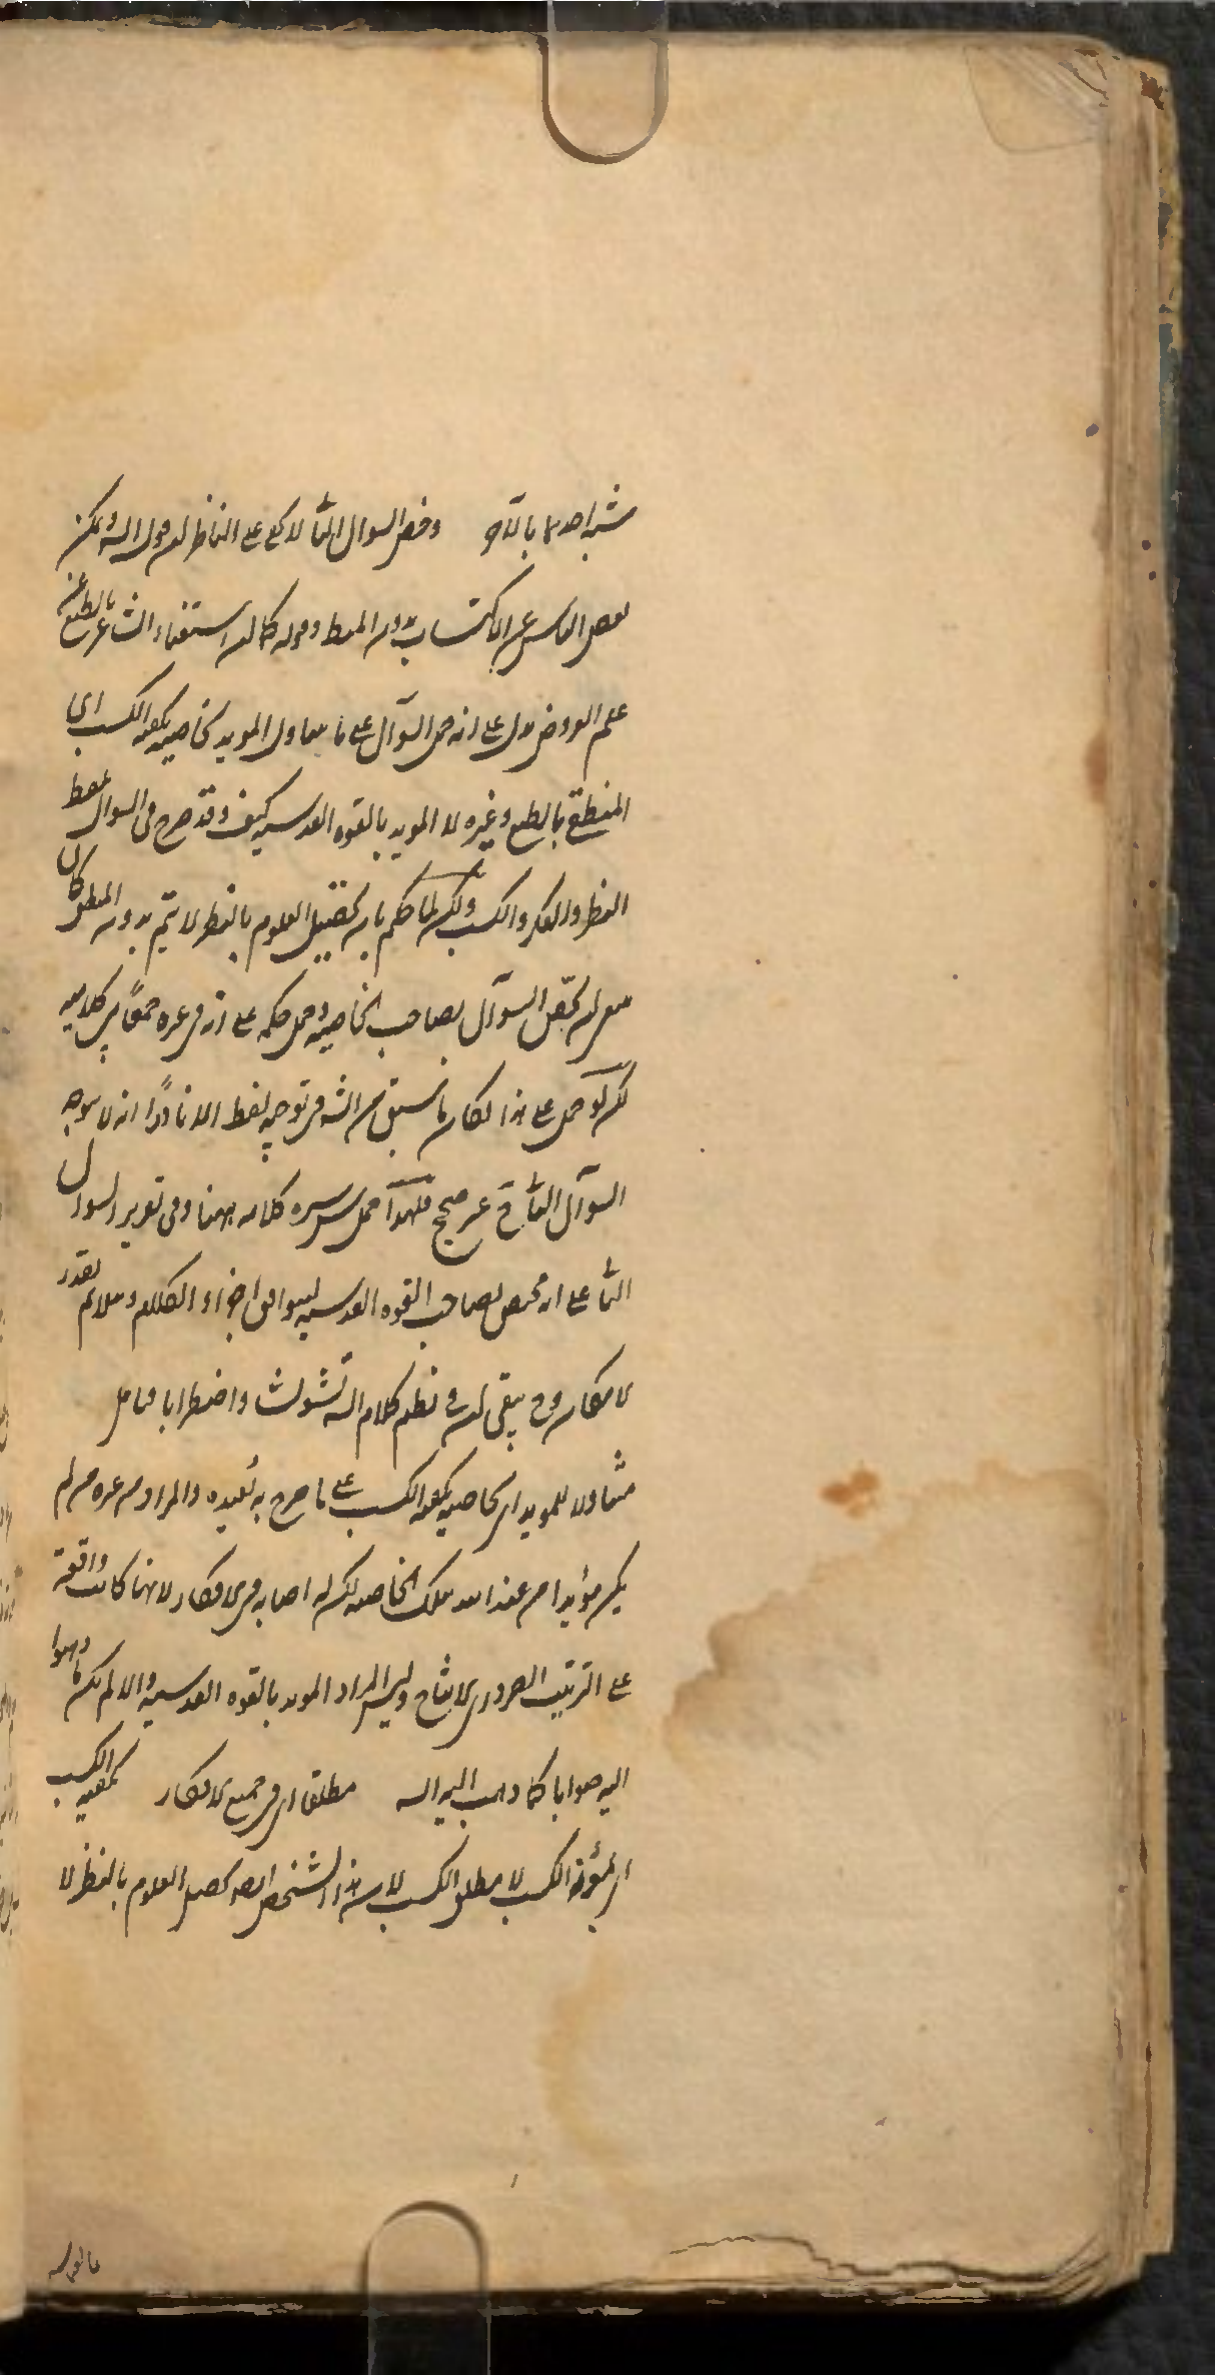 شبه احدهما بالآخر وخص السوال الثا لا يخفى على الناظر ان قول الش ويمكن
بعض الناس عن الاكتساب بدون المنطق وقوله كما ان استغناء الشاعر بالطبع عن
علم العروض يدل على انه حمل السوآل على ما يتناول المويد بخاصية يكفيه الكسب اى
المنطقى بالطبع وغيره لا المويد بالقوه القدسيه كيف وقد صرح فى السوال بلفظ
النظر والفكر والكسب ولكن لما حكم بان تحصيل العلوم بالنظر لا يتم بدون المنطق كان
السوآل بصاحب الخاصيه وحمل حكمه على انه فى غيره جمعًا بين كلاميه
لكن لو حمل على هذا لكان ما سبق من الش فى توجيه لفظ الا نادرًا انه لا يتوجه
السوآل الثا ح غير صحيح فلهذا حمل س سره كلامه ههنا وفى تقرير السوال
الثا على انه مختص بصاحب القوه القدسيه ليوافق اجزاء الكلام ويلائم بقدر
الامكان وح يبقى ان فى نظم كلام الش تشويشا واضطرابا فتامل
متناولا للمويد اى بخاصية يكفيه الكسب على ما صرح به بُعيده والمراد من غيره من لم
يكن مؤيدا من عند الله بتلك الخاصه لكن له اصابه فى الافكار لانها كانت واقعة
على الترتيب الضرورى الانتاج وليس المراد المويد بالقوه القدسيه والا لم يكن ما ذهبوا
اليه صوابا كما ذهب اليه الش مطلقا اى فى جميع الافكار يكفيه الكسب
اى مؤنة الكسب لا مطلق الكسب لان هذا الشخص ايضا يحصل العلوم بالنظر لا